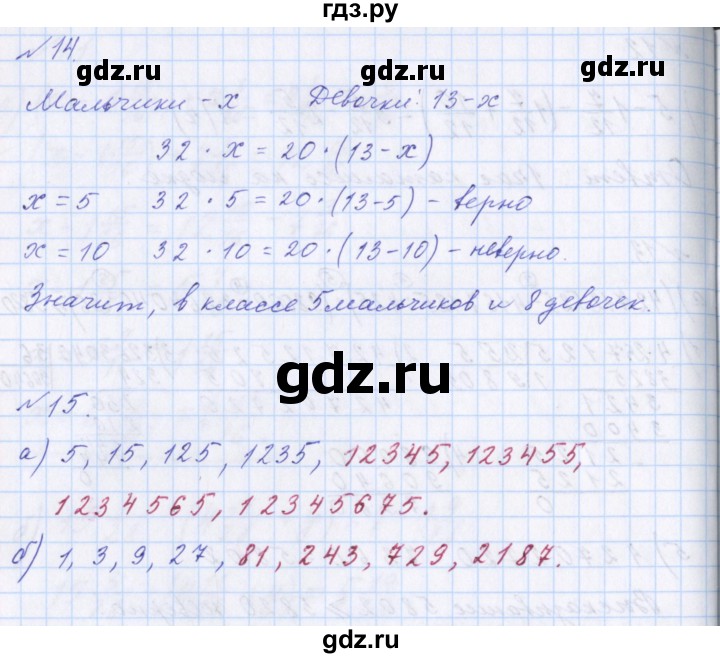 гдз.ру
№ 14.
gdz.ru gdz.ru
Мальчики - x Девочки: 13-x
32 · x = 20 · (13-x)
x = 5 32 · 5 = 20 · (13-5) - верно
x = 10 32 · 10 = 20 · (13-10) - неверно.
Значит, в классе 5 мальчиков и 8 девочек.
gdz.ru
№ 15.
а) 5, 15, 125, 1235, 12345, 123455,
1234565, 12345675.
б) 1, 3, 9, 27, 81, 243, 729, 2187.
gdz.ru gdz.ru
gdz.ru